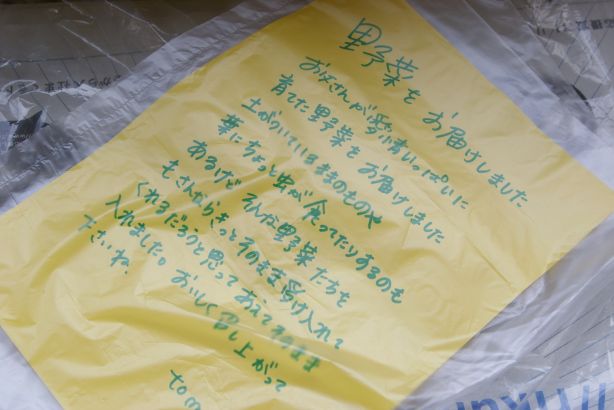 野菜をお届けしました
お母さんが愛情いっぱいに
育てた野菜をお届けしました
土がついているままのものや
葉にちょっと虫が食ってたりするのも
あるけど そんな野菜たちも
もさんならきっとそのまま受け入れて
くれるだろうと思って あえてそのまま
入れました。 おいしく召し上がって
下さいね。
tom